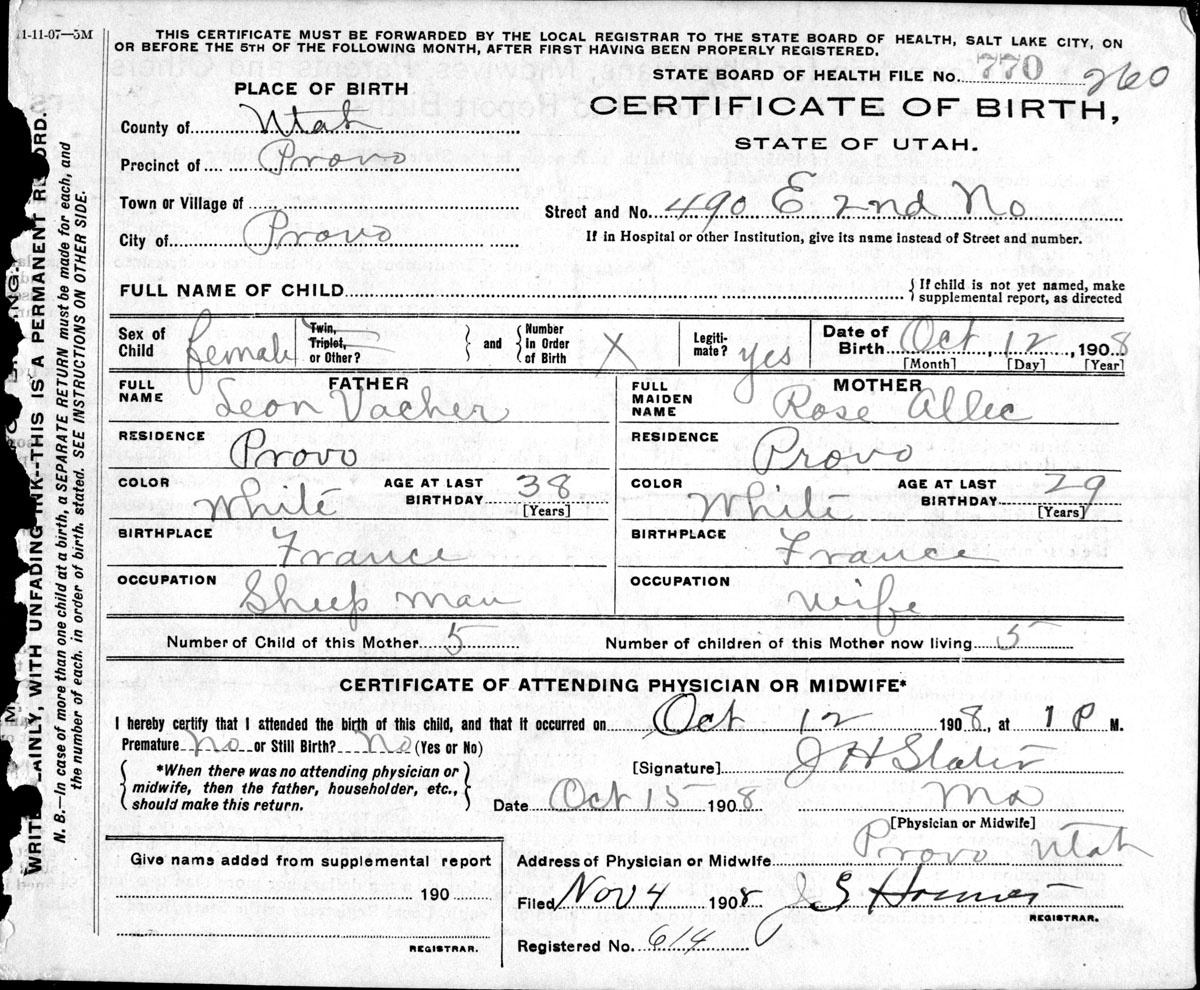 1-11-07—5M
THIS CERTIFICATE MUST BE FORWARDED BY THE LOCAL REGISTRAR TO THE STATE BOARD OF HEALTH, SALT LAKE CITY, ON
OR BEFORE THE 5TH OF THE FOLLOWING MONTH, AFTER FIRST HAVING BEEN PROPERLY REGISTERED.
STATE BOARD OF HEALTH FILE No. 770 260
PLACE OF BIRTH
CERTIFICATE OF BIRTH,
STATE OF UTAH.
County of Utah
Precinct of Provo
Town or Village of
Street and No. 490 E 2nd No
City of Provo
If in Hospital or other Institution, give its name instead of Street and number.
FULL NAME OF CHILD
{ If child is not yet named, make
supplemental report, as directed
Sex of Child female
Twin, Triplet, or Other? } and { Number In Order of Birth X
Legiti-mate? yes
Date of Birth Oct, 12, 1908
[Month] [Day] [Year]
FATHER
FULL NAME Leon Vacher
RESIDENCE Provo
COLOR White AGE AT LAST BIRTHDAY 38 [Years]
BIRTHPLACE France
OCCUPATION Sheep man
MOTHER
FULL MAIDEN NAME Rose Allec
RESIDENCE Provo
COLOR White AGE AT LAST BIRTHDAY 29 [Years]
BIRTHPLACE France
OCCUPATION wife
Number of Child of this Mother 5 Number of children of this Mother now living 5
CERTIFICATE OF ATTENDING PHYSICIAN OR MIDWIFE*
I hereby certify that I attended the birth of this child, and that it occurred on Oct 12 1908, at 1 P M.
Premature No or Still Birth? No (Yes or No)
{ *When there was no attending physician or
midwife, then the father, householder, etc.,
should make this return. }
[Signature] J H Slater
Date Oct 15 1908 MD
[Physician or Midwife]
Give name added from supplemental report
190
REGISTRAR.
Address of Physician or Midwife Provo Utah
Filed Nov 4 1908 J S
REGISTRAR.
Registered No. 614
WRITE LAINLY, WITH UNFADING INK--THIS IS A PERMANENT RE ORD.
N. B.—In case of more than one child at a birth, a SEPARATE RETURN must be made for each, and
the number of each, in order of birth, stated. SEE INSTRUCTIONS ON OTHER SIDE.